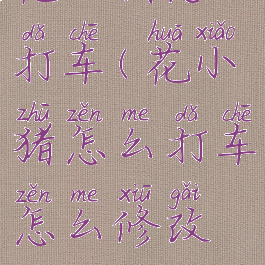 dǎ chē huā xiǎo
打车(花小
zhū zěn me dǎ chē
猪怎么打车
zěn me xiū gǎi
怎么修改